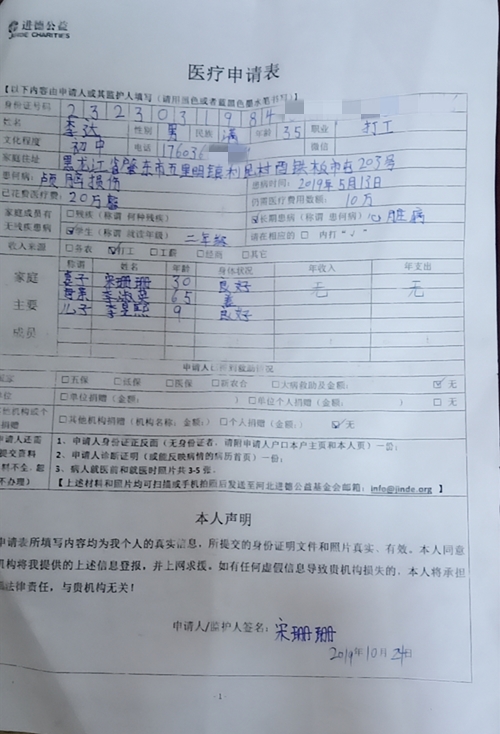 进德公益
JINDE CHARITIES
医疗申请表
【以下内容由申请人或其监护人填写（请用黑色或者蓝黑色墨水笔书写）】
身份证号码 2323031984
姓名 李达 性别 男 民族 满 年龄 35 职业 打工
文化程度 初中 电话 176036
家庭住址 黑龙江省肇东市五里明镇利民村西 203号
患何病：颅脑损伤 患病时间：2019年5月13日
已花费医疗费：20万 仍需医疗费用数额：10万
家庭成员有 □残疾（称谓 何种残疾） ☑长期患病（称谓 患何病）心脏病
无残疾患病 ☑学生（称谓 就读年级）二年级 请在相应的 □ 内打“√”
收入来源 □务农 ☑打工 □工薪 □经商 □其它
称谓 姓名 年龄 身体状况 年收入 年支出
家庭 妻子 宋珊珊 30 良好 无 无
主要 李淑英 65
成员 儿子 李昱熙 9 良好
□五保 □低保 □医保 □新农合 □大病救助及金额： ☑无
□单位捐赠（金额： ） □单位个人捐赠（金额： ） □无
其他机构或个人捐赠 □其他机构捐赠（机构名称；金额：） □个人捐赠（金额： ☑无
申请人还需提交资料 1、申请人身份证正反面（无身份证者，请附申请人户口本户主页和本人页）一份；
2、申请人诊断证明（或能反映病情的病历首页）一份；
3、病人就医前和就医时照片共 3-5 张。
【上述材料和照片均可扫描或手机拍照后发送至河北进德公益基金会邮箱：info@jinde.org 】
本人声明
申请表所填写内容均为我个人的真实信息，所提交的身份证明文件和照片真实、有效。本人同意
机构将我提供的上述信息登报，并上网求援。如有任何虚假信息导致贵机构损失的，本人将承担
法律责任，与贵机构无关！
申请人/监护人签名：宋珊珊
2019年10月24日
- 1 -